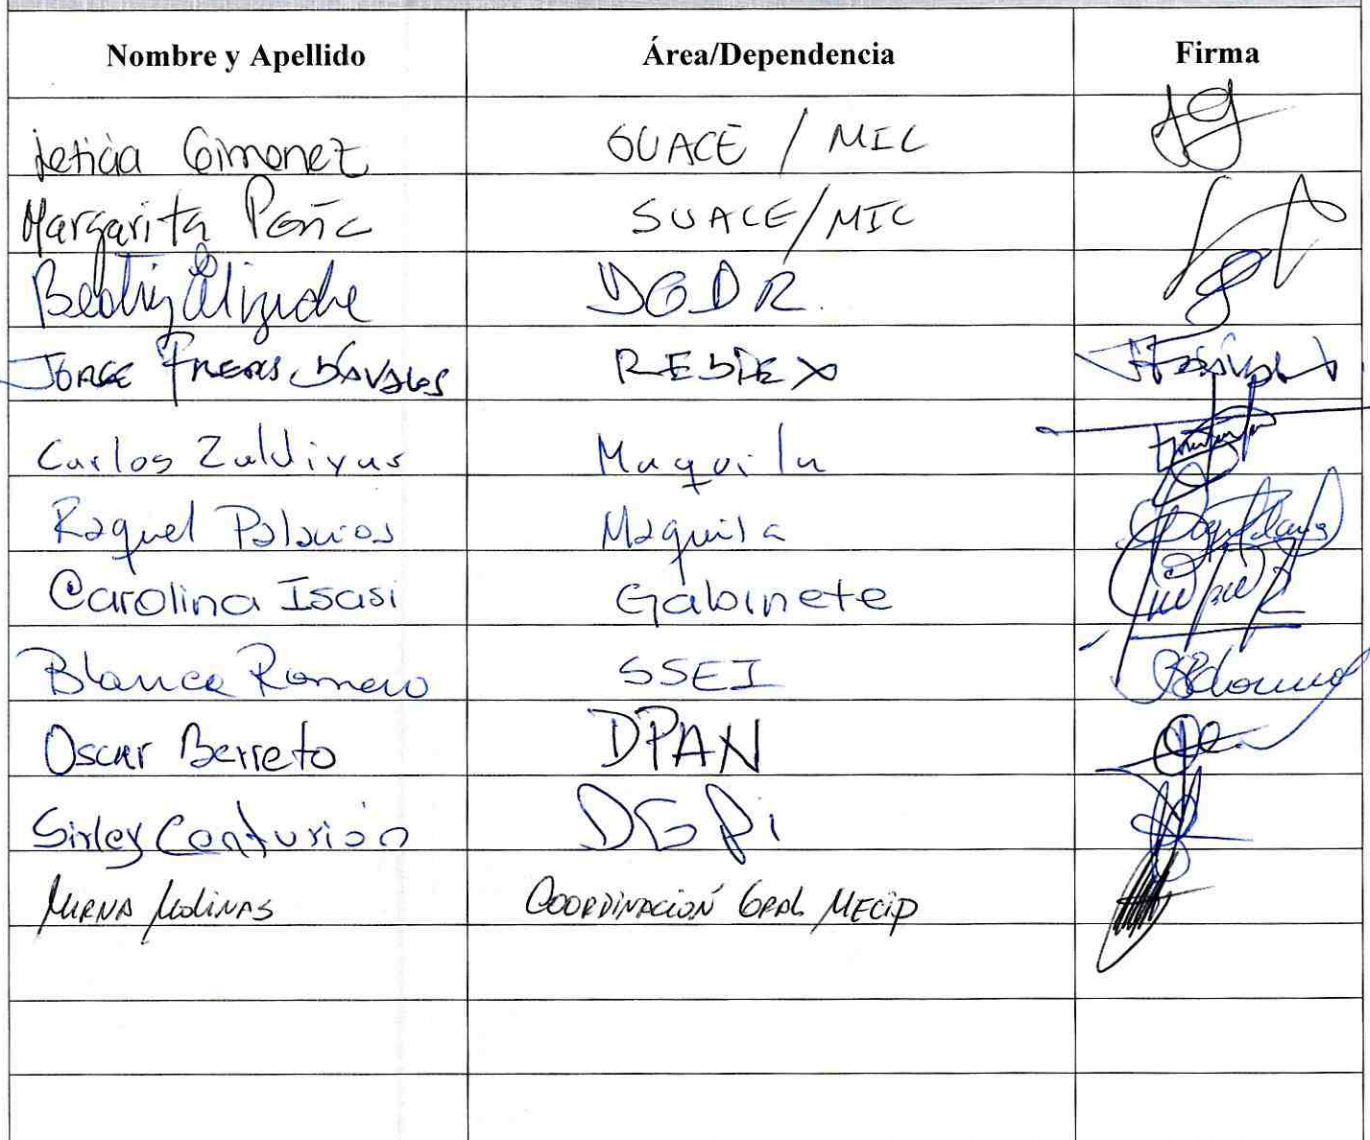 Nombre y Apellido Área/Dependencia Firma
Leticia Gimenez SUACE / MIC
Margarita Peña SUACE/MIC
Beatriz Elizeche DGDR.
JORGE DÁVALOS REDIEX
Carlos Zaldivar Maquila
Raquel Palacios Maquila
Carolina Isasi Gabinete
Blanca Romero SSEI
Oscar Berreto DPAN
Sirley Centurión DGPi
MIRNA MOLINAS COORDINACIÓN GRAL MECIP